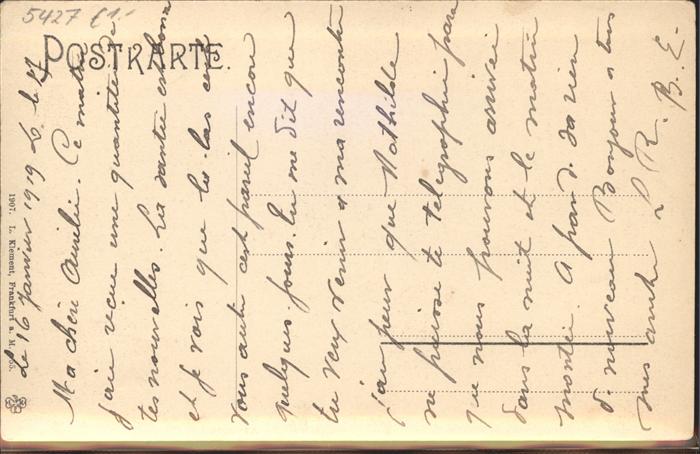 5427
POSTKARTE.
1907. L. Klement, Frankfurt a. M.
Le 16 Janvier 1919
Ma chère Amélie. Ce matin
j'ai reçue une quantité de
tes nouvelles. La santée est bonne
et je vois que là-bas chez
vous autre c'est pareil encore
quelques jours. Tu me dit que
tu veux venir à ma rencontre
j'ai peur que Mathilde
ne puisse te telegraphier parce
que nous pouvons arriver
dans la nuit et le matin
montée. A part ça rien
de nouveau Bonjour a tous
mes amitiés R. B. E.